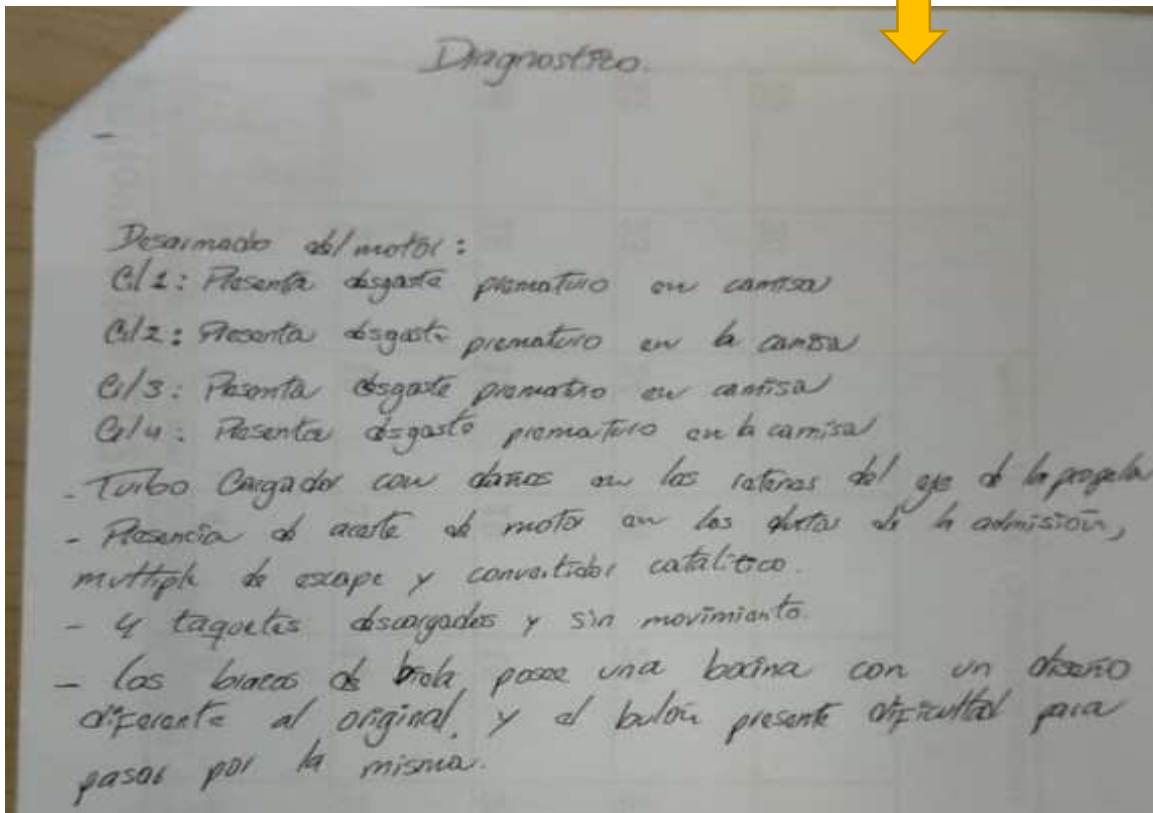 Diagnostico.
-
Desarmado del motor:
Cil1: Presenta desgaste prematuro en camisa
Cil2: Presenta desgaste prematuro en la camisa
Cil3: Presenta desgaste prematuro en camisa
Cil4: Presenta desgaste prematuro en la camisa
- Turbo Cargador con daños en las del eje de la propela
- Presencia de aceite de motor en los ductos de la admisión,
multiple de escape y convertidor catalitico.
- 4 taquetes descargados y sin movimiento.
- las de biela posee una bocina con un diseño
diferente al original, y el bulón presente dificultad para
pasar por la misma.